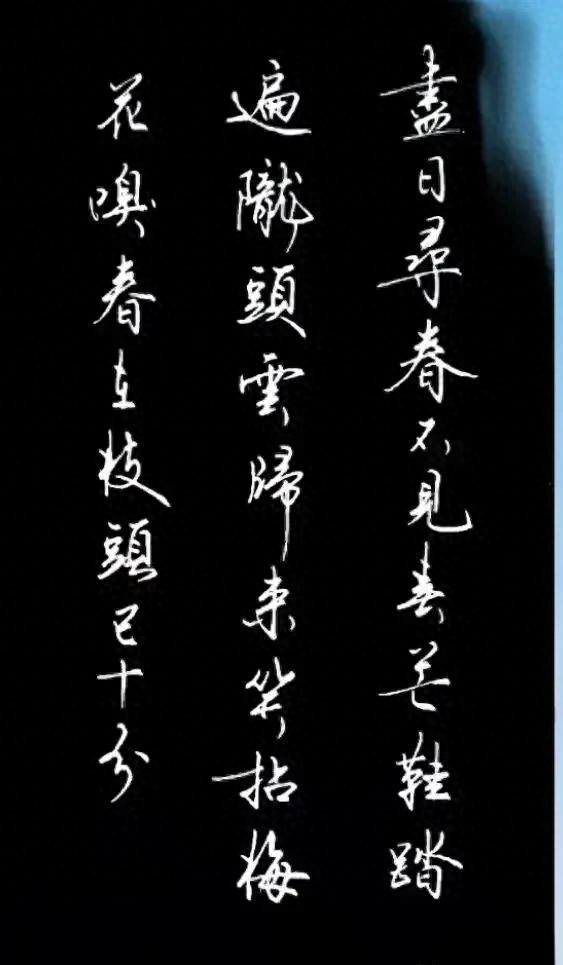 盡日尋春不見春芒鞋踏
遍隴頭雲歸來笑拈梅
花嗅春在枝頭已十分